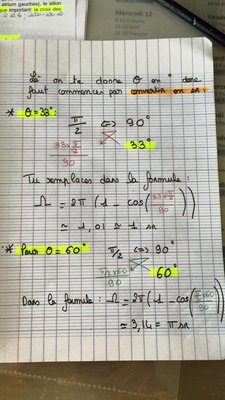 atrium gauches), le sillon
que important la croix des
Mercredi 12
Là on te donne θ en ° donc
faut commencer par convertir en sr :
* θ = 33° :
π/2 <=> 90°
33 × π/2 / 90
33°
Tu remplaces dans la formule :
Ω = 2π (1 - cos(33 × π/2 / 90))
≃ 1,01 ≃ 1 sr
* Pour θ = 60°
π/2 <=> 90°
π/2 × 60 / 90
60°
Dans la formule : Ω = 2π (1 - cos(π/2 × 60 / 90))
≃ 3,14 = π sr